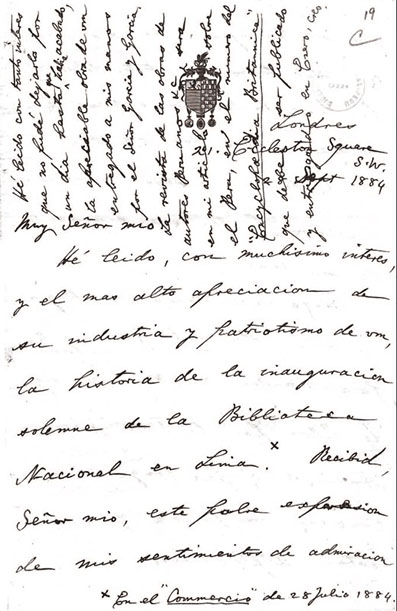 19
C
Londres
21. Eccleston Square
S.W.
Sept 1884
Muy Señor mio
Hé leido, con muchisimo interes,
y el mas alto apreciacion de
su industria y patriotismo de vm,
la historia de la inauguracion
solemne de la Biblioteca
Nacional en Lima. x Recibid,
Señor mio, este pobre expresion
de mis sentimientos de admiracion
x En el "Commercio" de 28 Julio 1884.
Hé leido con tanto interes
que no pude dejarlo por
un dia hasta acabado,
ta apreciable obra de vm
entregado a mis manos
por el Señor Garcia y Garcia.
La revista de las obras de
autores Peruanos sera
en mi articulo sobre
el Peru, en el numero del
"Encyclopædia Britannica"
que debe de ser publicado
y entregado en Enero, creo